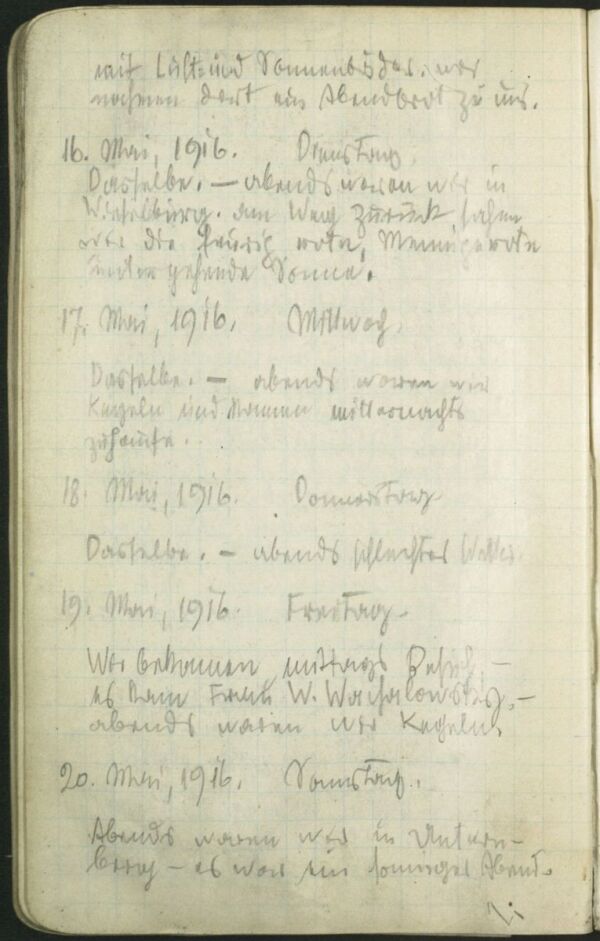 mit Luft- und Sonnenbäder. wir
nahmen dort ein Abendbrot zu uns.
16. Mai, 1916. Dienstag.
Dasselbe. — abends waren wir in
Wieselburg. am Weg zurück sahen
wir die feurig rote,
untergehende Sonne.
17. Mai, 1916. Mittwoch.
Dasselbe. — abends waren wir
Kegeln und kamen mitternachts
zuhause.
18. Mai, 1916. Donnerstag
Dasselbe. — abends schlechtes Wetter.
19. Mai, 1916. Freitag.
Wir bekamen mittags Besuch, —
es kam Frau W. —
abends waren wir Kegeln.
20. Mai, 1916. Samstag.
Abends waren wir in
berg — es war ein sonniger Abend.